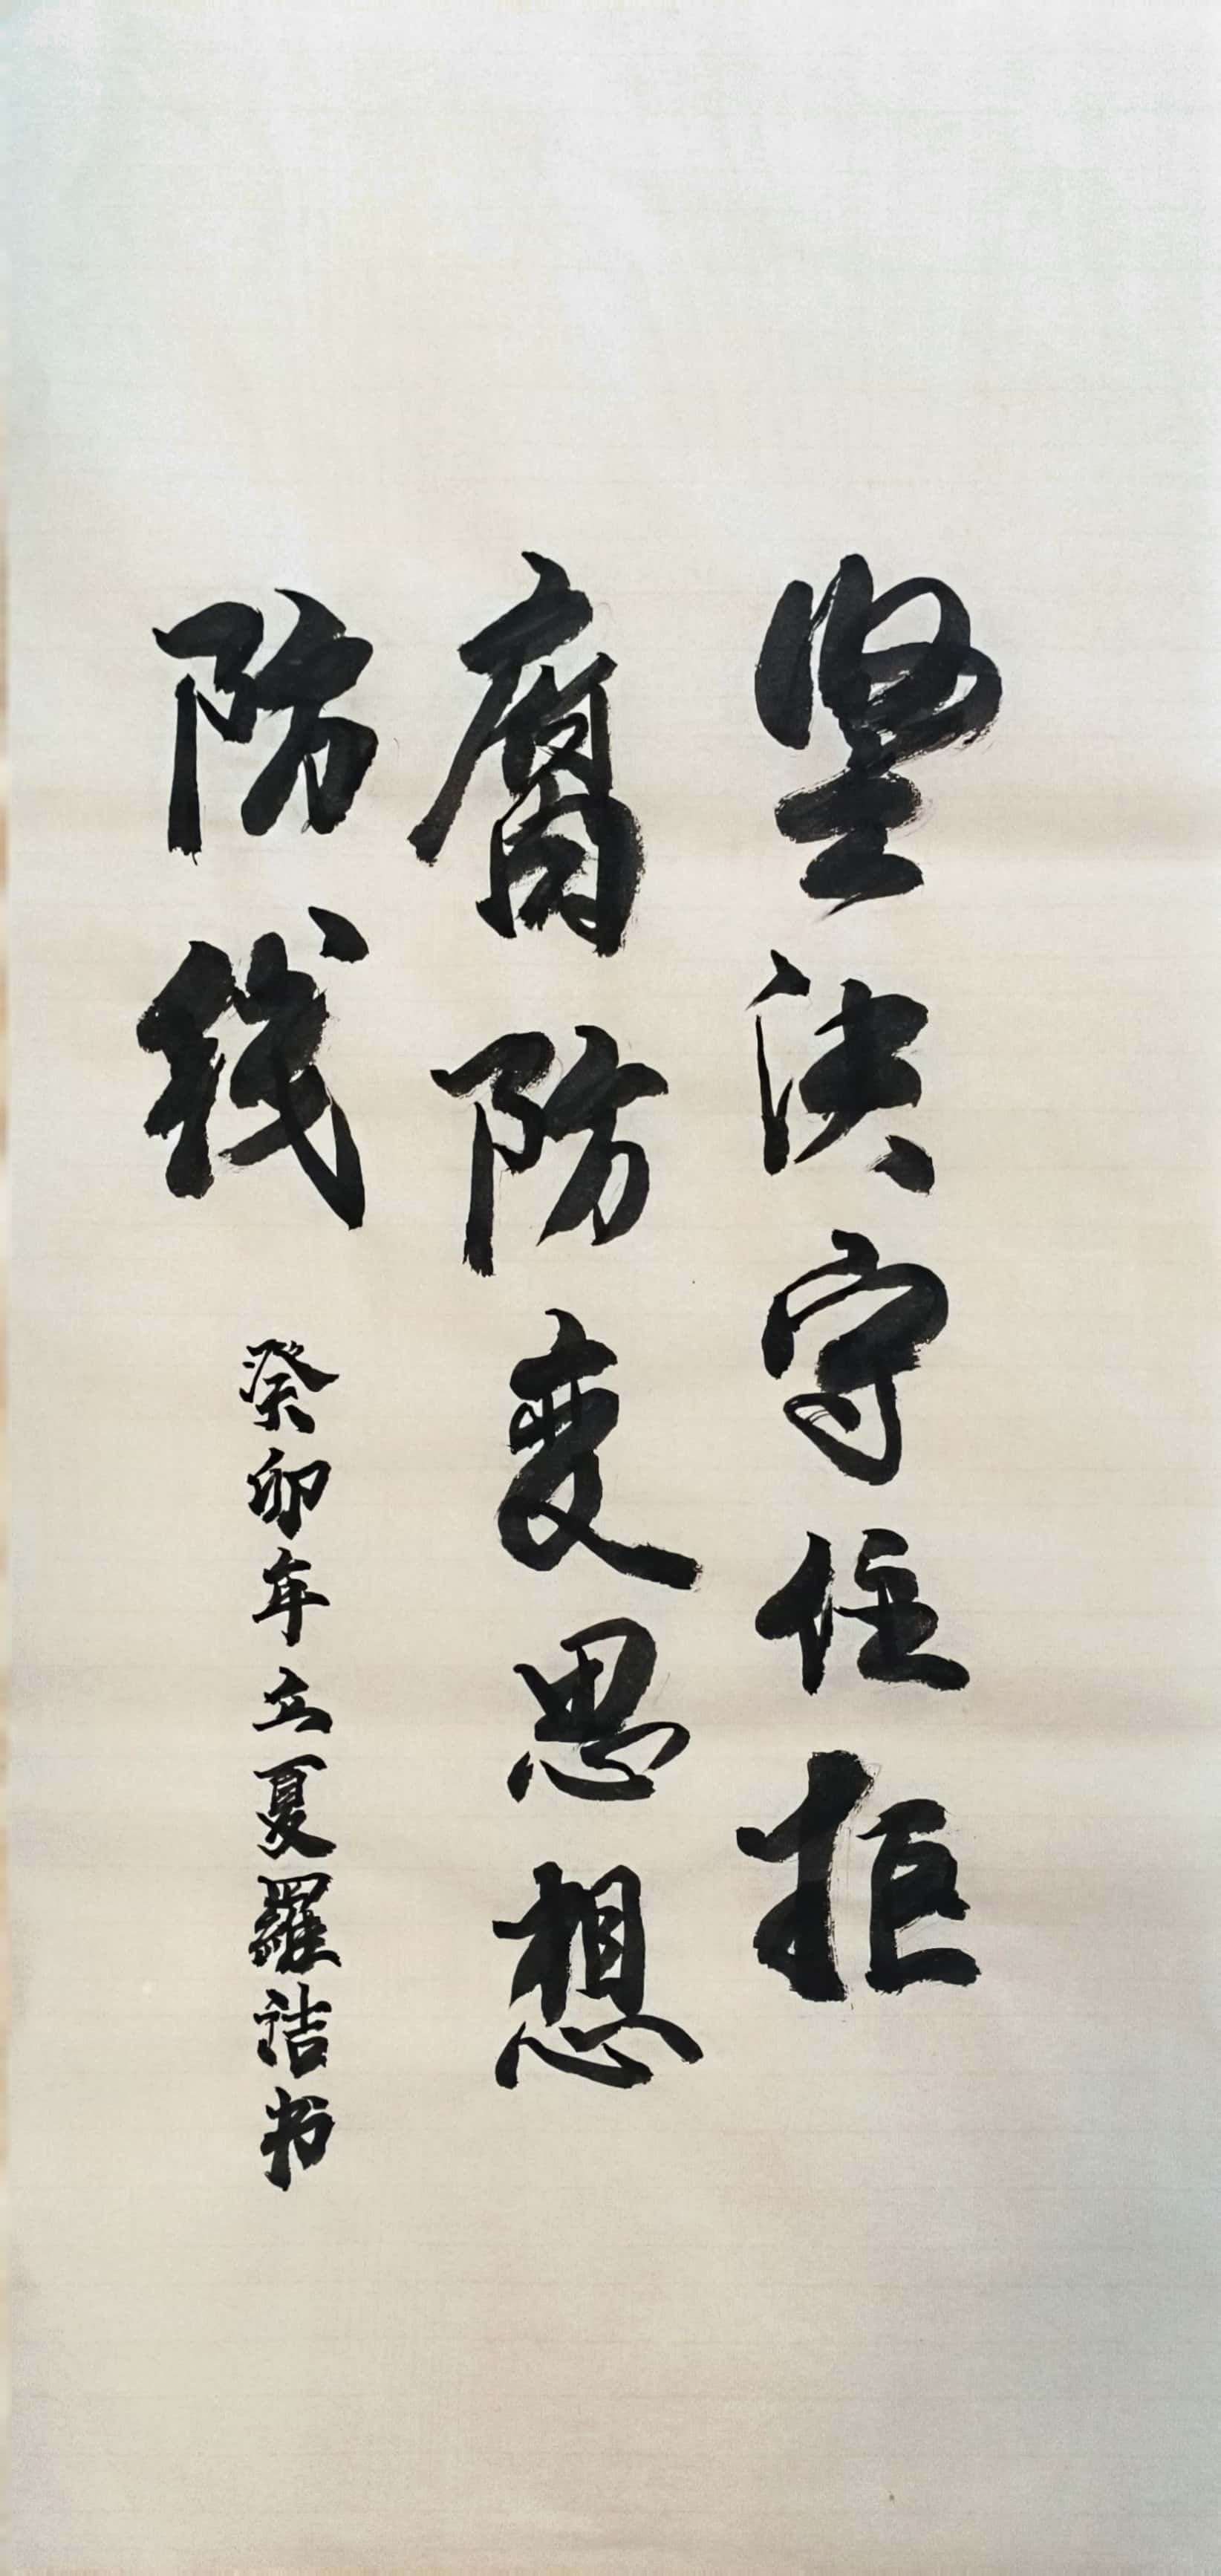 坚决守住拒
腐防变思想
防线
癸卯年立夏羅洁书